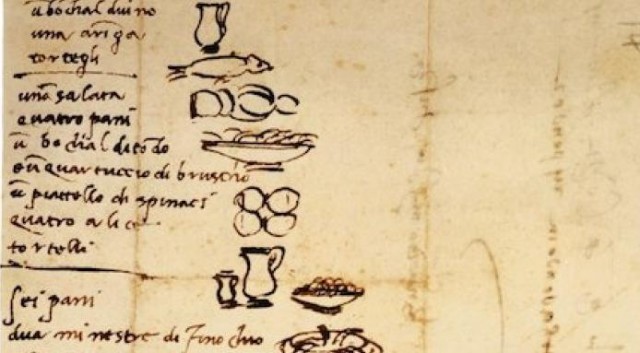 ū bochal di vino
una aringa
tortegli
una salata
quatro pani
ū bochal di tōdo
e ū quartuccio di bruscho
ū piattello di spinaci
quatro alice
tortelli
sei pani
dua minestre di finochio